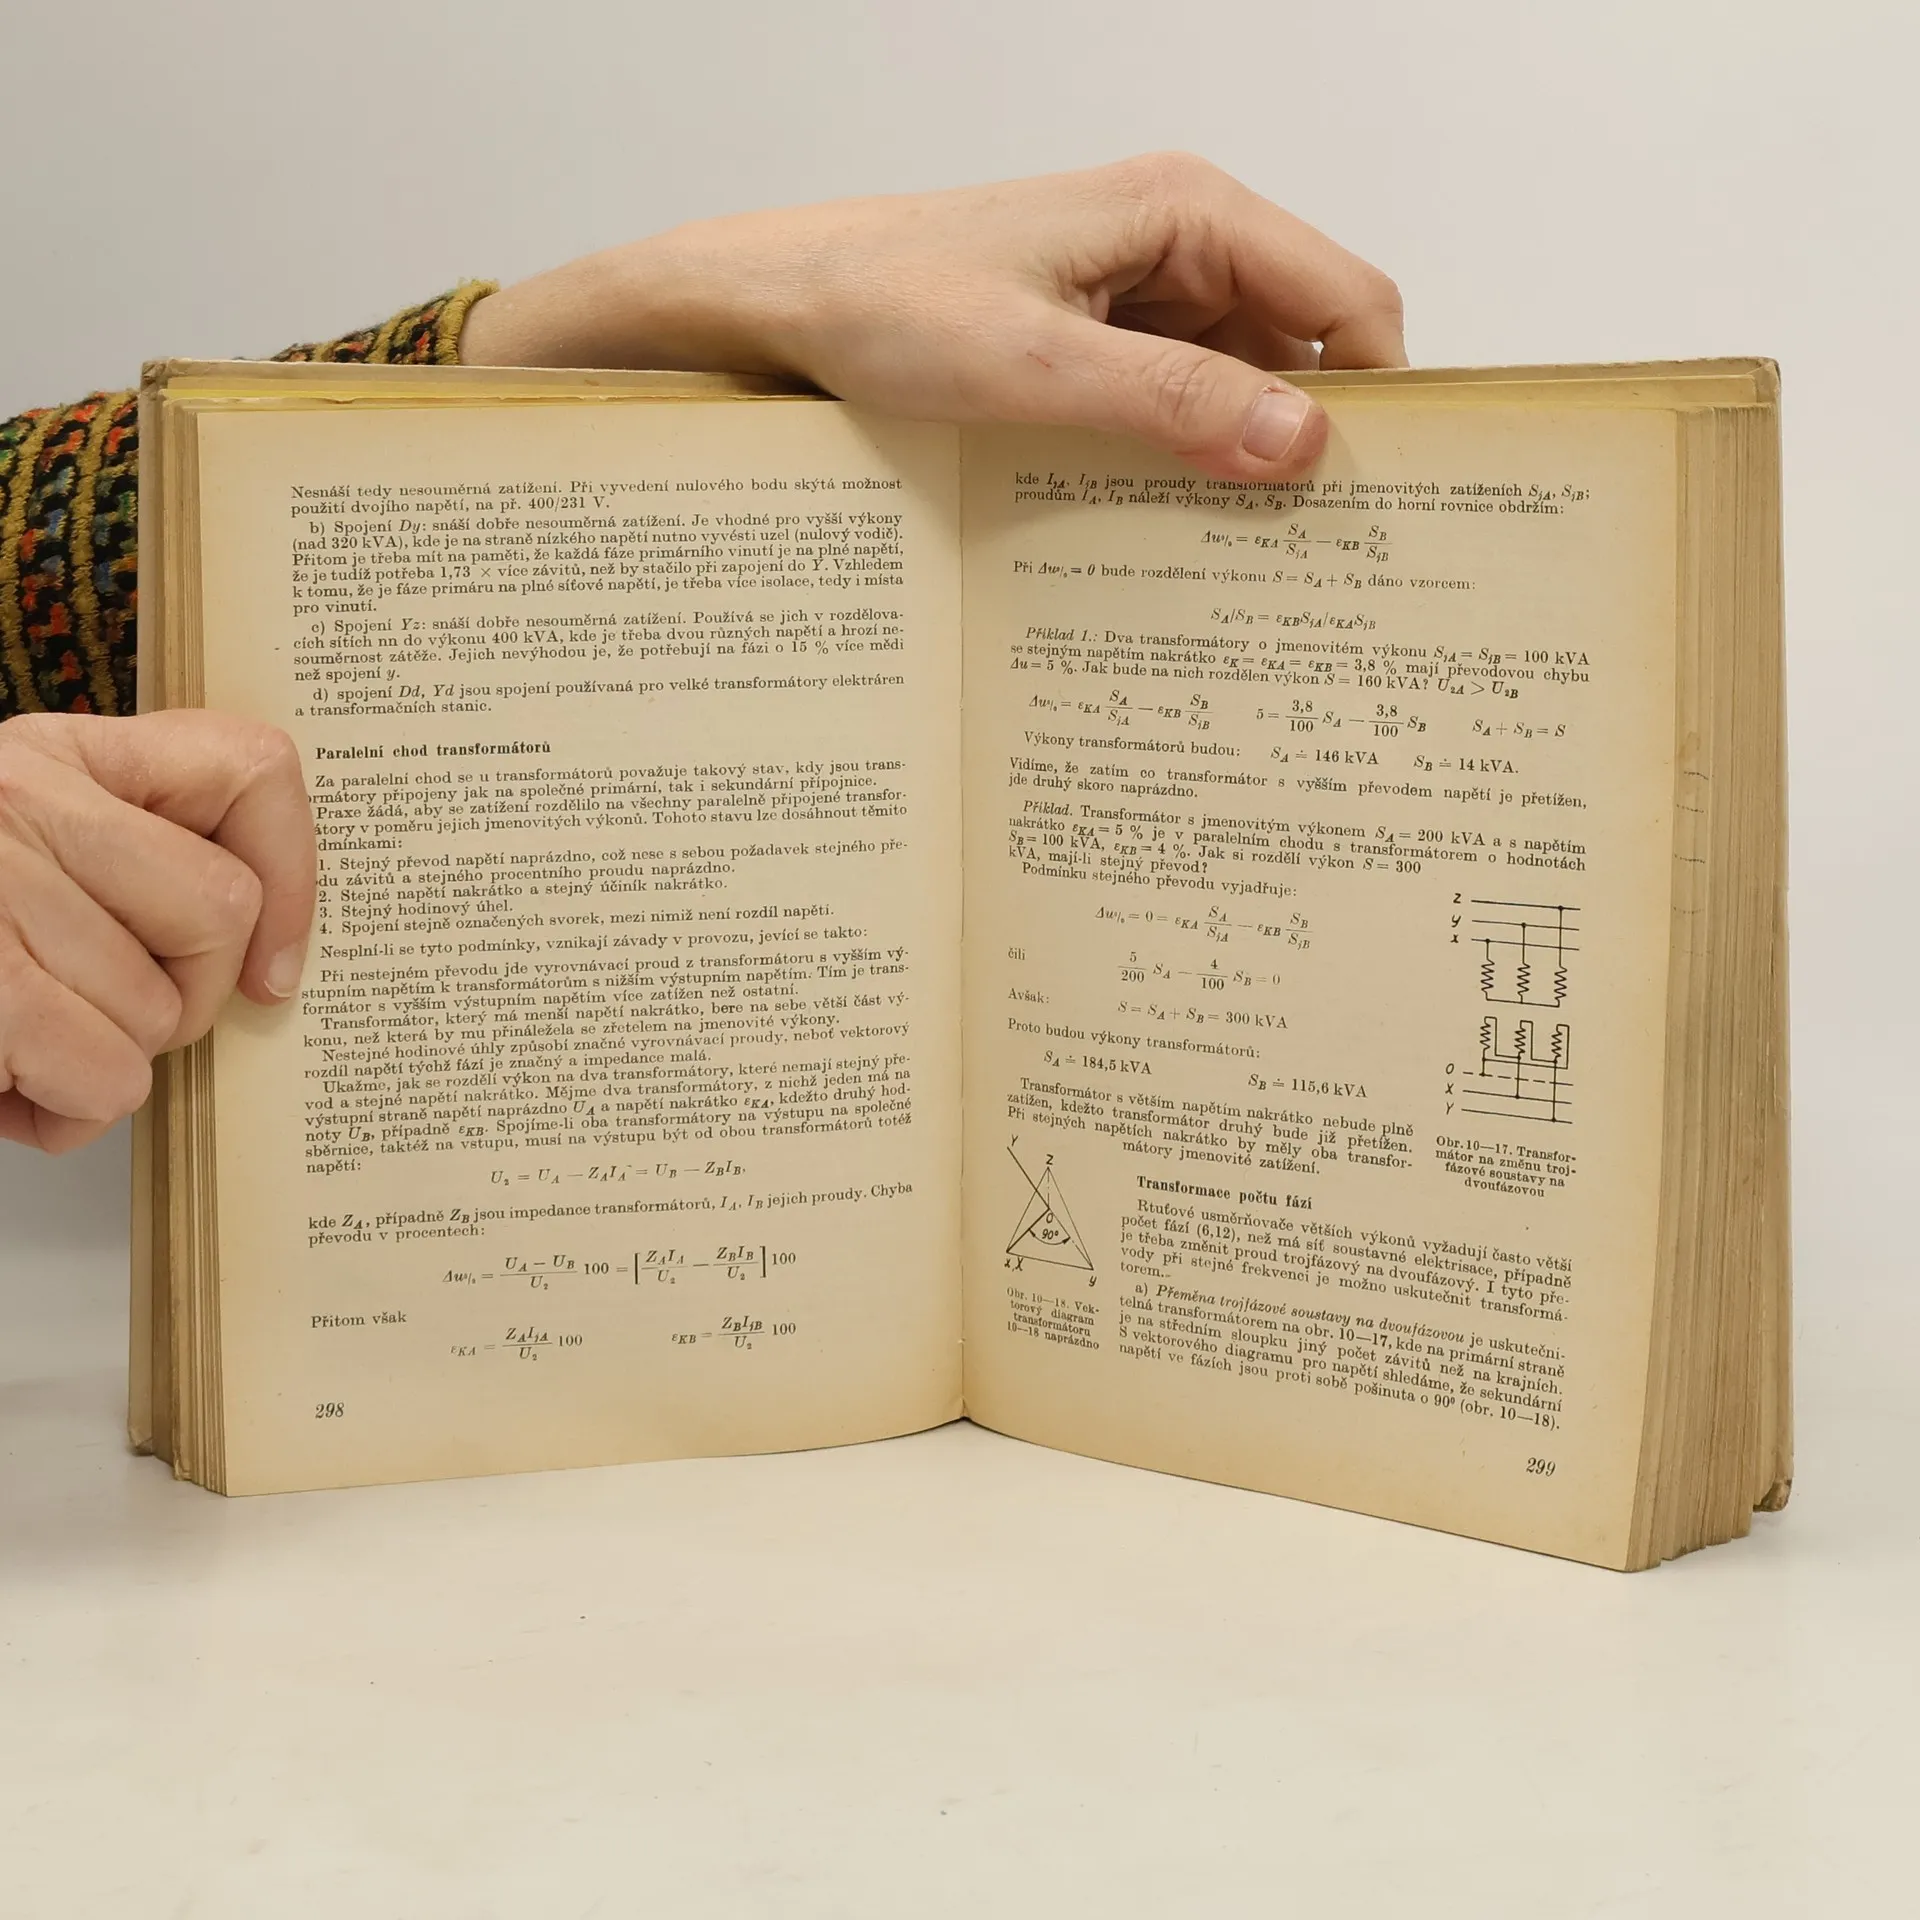 Nesnáší tedy nesouměrná zatížení. Při vyvedení nulového bodu skýtá možnost
použití dvojího napětí, na př. 400/231 V.
b) Spojení Dy: snáší dobře nesouměrná zatížení. Je vhodné pro vyšší výkony
(nad 320 kVA), kde je na straně nízkého napětí nutno vyvésti uzel (nulový vodič).
Přitom je třeba mít na paměti, že každá fáze primárního vinutí je na plné napětí,
že je tudíž potřeba 1,73 × více závitů, než by stačilo při zapojení do Y. Vzhledem
k tomu, že je fáze primáru na plné síťové napětí, je třeba více isolace, tedy i místa
pro vinutí.
c) Spojení Yz: snáší dobře nesouměrná zatížení. Používá se jich v rozdělova-
cích sítích nn do výkonu 400 kVA, kde je třeba dvou různých napětí a hrozí ne-
souměrnost zátěže. Jejich nevýhodou je, že potřebují na fázi o 15 % více mědi
než spojení y.
d) spojení Dd, Yd jsou spojení používaná pro velké transformátory elektráren
a transformačních stanic.
Paralelní chod transformátorů
Za paralelní chod se u transformátorů považuje takový stav, kdy jsou trans-
ormátory připojeny jak na společné primární, tak i sekundární přípojnice.
Praxe žádá, aby se zatížení rozdělilo na všechny paralelně připojené transfor-
átory v poměru jejich jmenovitých výkonů. Tohoto stavu lze dosáhnout těmito
dmínkami:
1. Stejný převod napětí naprázdno, což nese s sebou požadavek stejného pře-
du závitů a stejného procentního proudu naprázdno.
2. Stejné napětí nakrátko a stejný účiník nakrátko.
3. Stejný hodinový úhel.
4. Spojení stejně označených svorek, mezi nimiž není rozdíl napětí.
Nesplní-li se tyto podmínky, vznikají závady v provozu, jevící se takto:
Při nestejném převodu jde vyrovnávací proud z transformátoru s vyšším vý-
stupním napětím k transformátorům s nižším výstupním napětím. Tím je trans-
formátor s vyšším výstupním napětím více zatížen než ostatní.
Transformátor, který má menší napětí nakrátko, bere na sebe větší část vý-
konu, než která by mu přináležela se zřetelem na jmenovité výkony.
Nestejné hodinové úhly způsobí značné vyrovnávací proudy, neboť vektorový
rozdíl napětí týchž fází je značný a impedance malá.
Ukažme, jak se rozdělí výkon na dva transformátory, které nemají stejný pře-
vod a stejné napětí nakrátko. Mějme dva transformátory, z nichž jeden má na
výstupní straně napětí naprázdno U_A a napětí nakrátko ε_KA, kdežto druhý hod-
noty U_B, případně ε_KB. Spojíme-li oba transformátory na výstupu na společné
sběrnice, taktéž na vstupu, musí na výstupu být od obou transformátorů totéž
napětí:
U₂ = U_A — Z_A I_A = U_B — Z_B I_B,
kde Z_A, případně Z_B jsou impedance transformátorů, I_A, I_B jejich proudy. Chyba
převodu v procentech:
Δu% = (U_A — U_B)/U₂ 100 = [Z_A I_A/U₂ — Z_B I_B/U₂] 100
Přitom však
ε_KA = Z_A I_jA/U₂ 100 ε_KB = Z_B I_jB/U₂ 100
298
kde I_jA, I_jB jsou proudy transformátorů při jmenovitých zatíženích S_jA, S_jB;
proudům I_A, I_B náleží výkony S_A, S_B. Dosazením do horní rovnice obdržím:
Δu% = ε_KA S_A/S_jA — ε_KB S_B/S_jB
Při Δu% = 0 bude rozdělení výkonu S = S_A + S_B dáno vzorcem:
S_A/S_B = ε_KB S_jA/ε_KA S_jB
Příklad 1.: Dva transformátory o jmenovitém výkonu S_jA = S_jB = 100 kVA
se stejným napětím nakrátko ε_K = ε_KA = ε_KB = 3,8 % mají převodovou chybu
Δu = 5 %. Jak bude na nich rozdělen výkon S = 160 kVA? U₂A > U₂B
Δu% = ε_KA S_A/S_jA — ε_KB S_B/S_jB 5 = 3,8/100 S_A — 3,8/100 S_B S_A + S_B = S
Výkony transformátorů budou: S_A ≐ 146 kVA S_B ≐ 14 kVA.
Vidíme, že zatím co transformátor s vyšším převodem napětí je přetížen,
jde druhý skoro naprázdno.
Příklad. Transformátor s jmenovitým výkonem S_A = 200 kVA a s napětím
nakrátko ε_KA = 5 % je v paralelním chodu s transformátorem o hodnotách
S_B = 100 kVA, ε_KB = 4 %. Jak si rozdělí výkon S = 300
kVA, mají-li stejný převod?
Podmínku stejného převodu vyjadřuje:
Δu% = 0 = ε_KA S_A/S_jA — ε_KB S_B/S_jB
čili
5/200 S_A — 4/100 S_B = 0
Avšak:
S = S_A + S_B = 300 kVA
Proto budou výkony transformátorů:
S_A ≐ 184,5 kVA S_B ≐ 115,6 kVA
Transformátor s větším napětím nakrátko nebude plně
zatížen, kdežto transformátor druhý bude již přetížen.
Při stejných napětích nakrátko by měly oba transfor-
mátory jmenovité zatížení.
Z
y
x
O
X
Y
Obr. 10—17. Transfor-
mátor na změnu troj-
fázové soustavy na
dvoufázovou
Y
Z
O
90°
x,X
y
Obr. 10—18. Vek-
torový diagram
transformátoru
10—18 naprázdno
Transformace počtu fází
Rtuťové usměrňovače větších výkonů vyžadují často větší
počet fází (6,12), než má síť soustavné elektrisace, případně
je třeba změnit proud trojfázový na dvoufázový. I tyto pře-
vody při stejné frekvenci je možno uskutečnit transformá-
torem.
a) Přeměna trojfázové soustavy na dvoufázovou je uskuteční-
telná transformátorem na obr. 10—17, kde na primární straně
je na středním sloupku jiný počet závitů než na krajních.
S vektorového diagramu pro napětí shledáme, že sekundární
napětí ve fázích jsou proti sobě pošinuta o 90° (obr. 10—18).
299